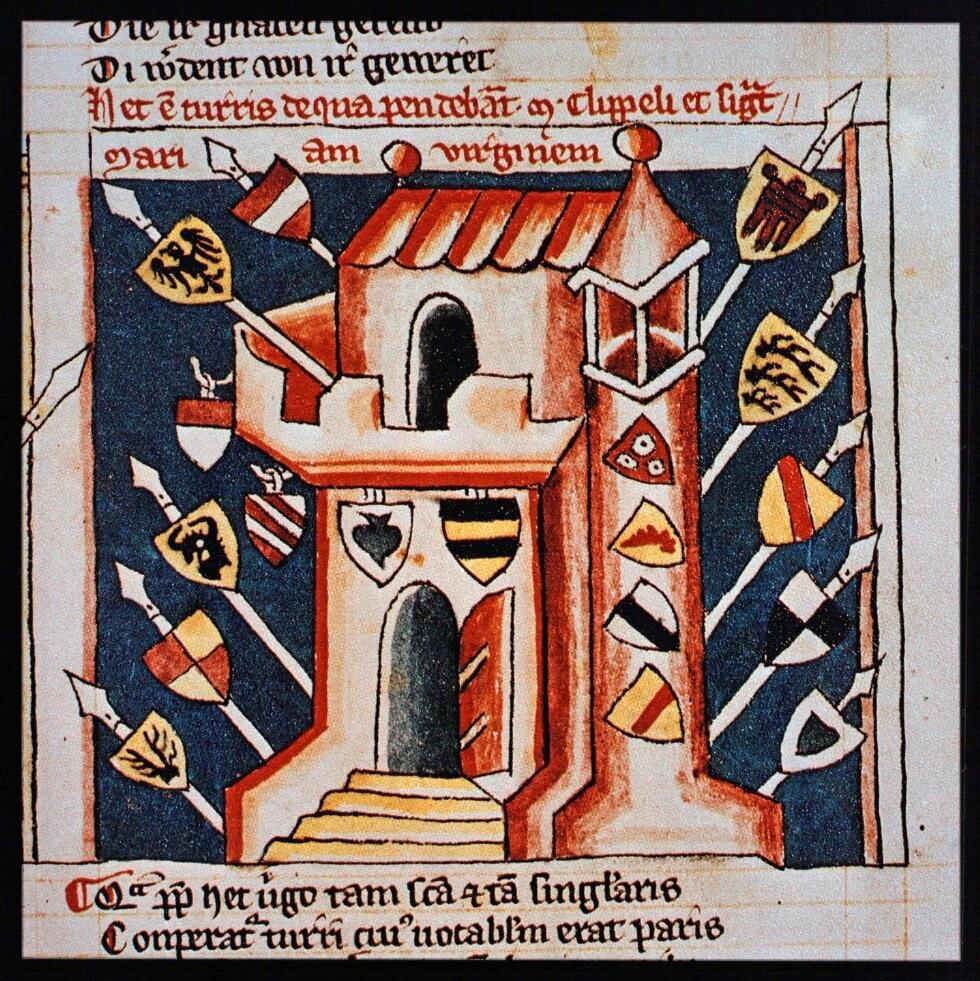 Die ir gnaden
Di wͦdent von ir gewerēt
Hec ē turris de qua pendebāt m· Clippeli et sigᷓt
mari am virginem
Qᵃ ꝓp̄ hec v̇go tam scā ⁊ tā singl̓aris
Conperatᷓ turri cuiꝰ uotabl̓m erat paris